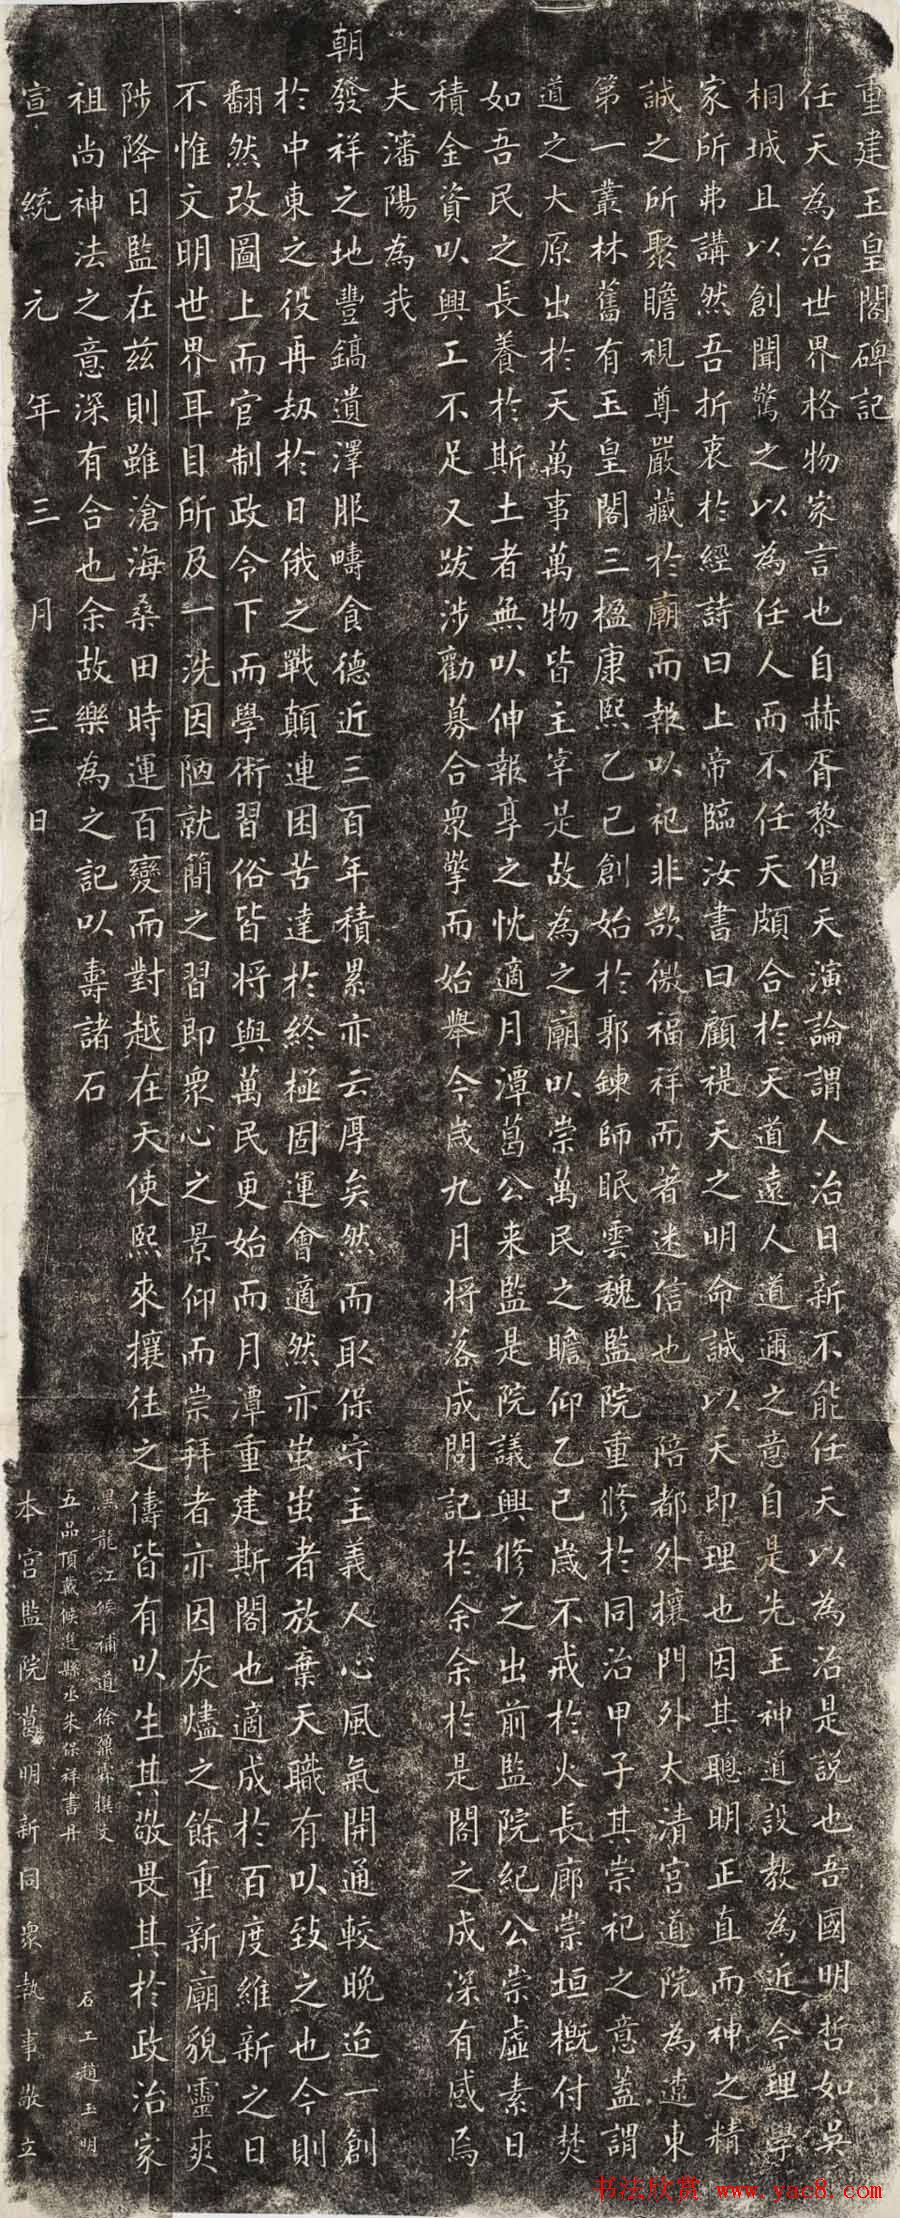 重建玉皇閣碑記
任天為治世界格物家言也自赫胥黎倡天演論謂人治日新不能任天以為治是説也吾國明哲如吳
桐城且以創聞驚之以為任人而不任天頗合於天道遠人道邇之意自是先王神道設教為近今理學
家所弗講然吾折衷於經詩曰上帝臨汝書曰顧諟天之明命誠以天即理也因其聰明正直而神之精
誠之所聚瞻視尊嚴藏於廟而報以祀非欲徼福祥而著迷信也陪都外攘門外太清宮道院為遼東
第一叢林舊有玉皇閣三楹康熙乙巳創始於郭鍊師眠雲魏監院重修於同治甲子其崇祀之意蓋謂
道之大原出於天萬事萬物皆主宰是故為之廟以崇萬民之瞻仰乙巳歲不戒於火長廊崇垣概付焚
如吾民之長養於斯土者無以伸報享之忱適月潭葛公来監是院議興修之出前監院紀公崇虛素日
積金資以興工不足又跋涉勸募合衆擎而始舉今歲九月將落成問記於余余於是閣之成深有感焉
夫瀋陽為我
朝發祥之地豐鎬遺澤服疇食德近三百年積累亦云厚矣然而取保守主義人心風氣開通較晚迨一創
於中東之役再刼於日俄之戰顛連困苦達於終極固運會適然亦蚩蚩者放棄天職有以致之也今則
翻然改圖上而官制政令下而學術習俗皆將與萬民更始而月潭重建斯閣也適成於百度維新之日
不惟文明世界耳目所及一洗因陋就簡之習即衆心之景仰而崇拜者亦因灰燼之餘重新廟貌靈爽
陟降日監在茲則雖滄海桑田時運百變而對越在天使熙來攘往之儔皆有以生其敬畏其於政治家
祖尚神法之意深有合也余故樂為之記以壽諸石
宣統元年三月三日
黑龍江候補道徐鼐霖撰文
五品頂戴候選縣丞朱保祥書丹
石工趙玉明
本宮監院葛明新同衆執事敬立
书法欣赏 www.yac8.com